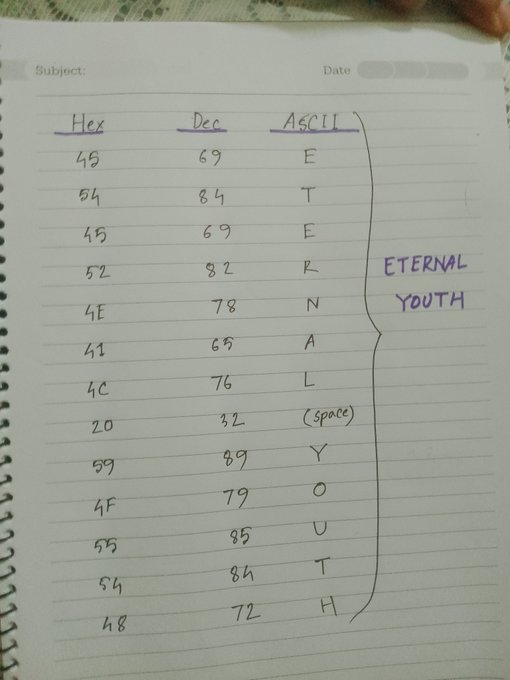 Subject: Date
Hex Dec ASCII
45 69 E
54 84 T
45 69 E
52 82 R
4E 78 N
41 65 A
4C 76 L
20 32 (space)
59 89 Y
4F 79 O
55 85 U
54 84 T
48 72 H
ETERNAL
YOUTH